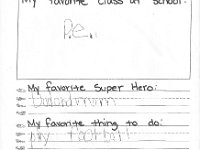 My favorite class at school:
P.e.
My favorite Super Hero:
My favorite thing to do:
Play football